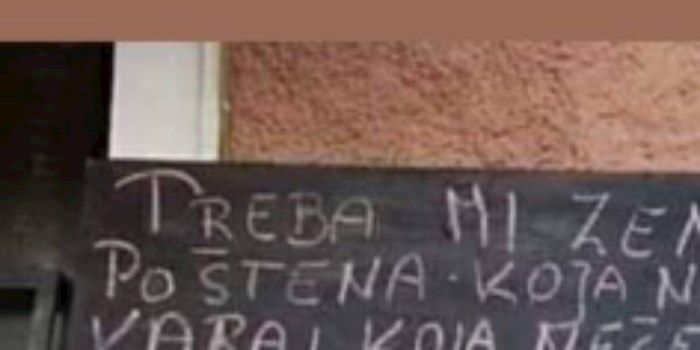 TREBA MI ZEN
POŠTENA. KOJA N
VARA, KOJA